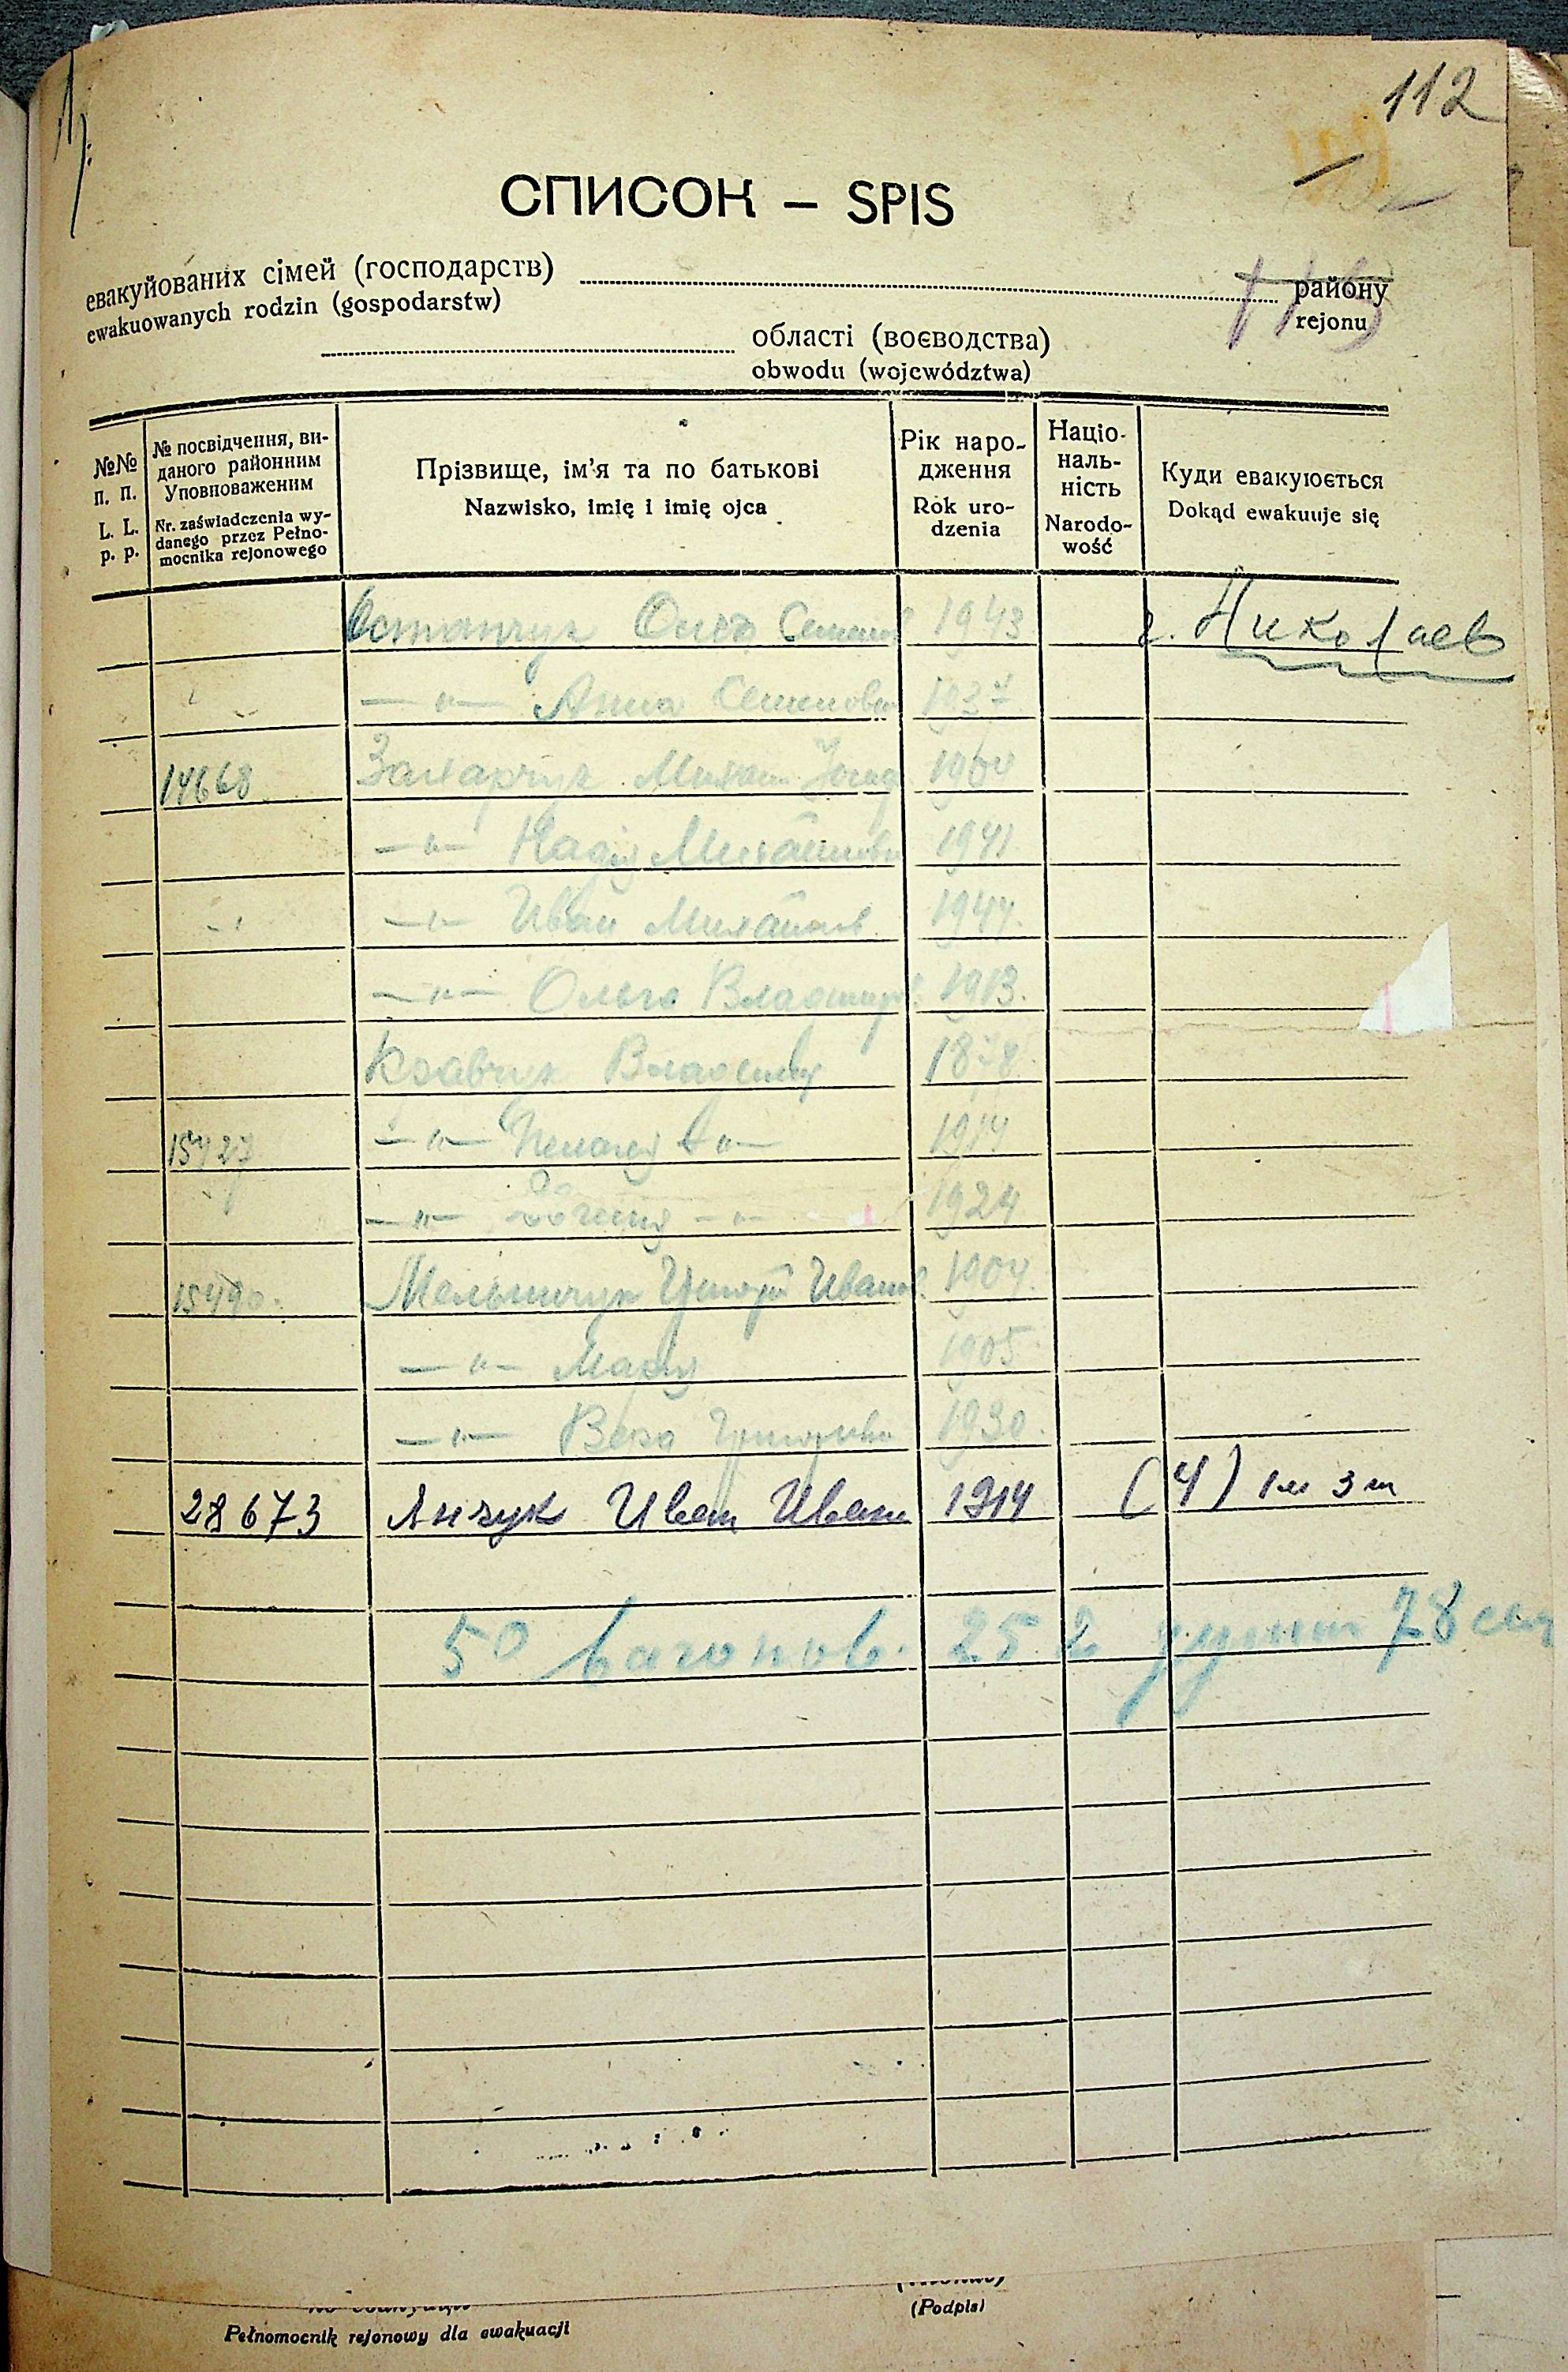 112
СПИСОК – SPIS
евакуйованих сімей (господарств) району
ewakuowanych rodzin (gospodarstw) rejonu
області (воєводства)
obwodu (województwa)
№№ п. п. L. L. p. p.
№ посвідчення, виданого районним Уповноваженим Nr. zaświadczenia wydanego przez Pełnomocnika rejonowego
Прізвище, ім'я та по батькові Nazwisko, imię i imię ojca
Рік народження Rok urodzenia
Національність Narodowość
Куди евакуюється Dokąd ewakuuje się
Остапчук Семенов 1943 г. Николаев
— " — Анна Семеновн 1937
14668 Захарчук Михаил 1900
— " — Надія Михайловн 1941
— " — Иван Михайлов 1944
— " — Ольга Владимир 1913.
Кравчук Владимир
15427 — " — — " — 1914
— " — — " — 1924
15490. Мельничук Иванов 1904.
— " — Мария 1905
— " — Вера 1930.
28673 Иван Иван 1914 (4)
50 вагонов. 252 78
Pełnomocnik rejonowy dla ewakuacji
(Podpis)